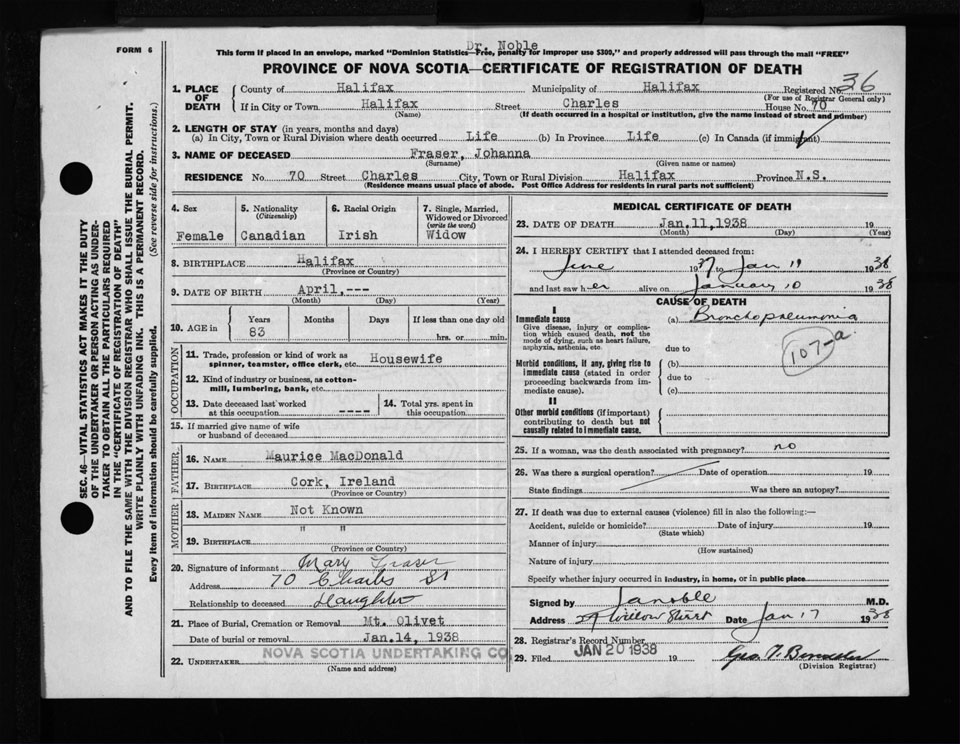 FORM 6
Dr. Noble
This form if placed in an envelope, marked "Dominion Statistics—Free, penalty for improper use $300," and properly addressed will pass through the mail "FREE"
PROVINCE OF NOVA SCOTIA—CERTIFICATE OF REGISTRATION OF DEATH
36
1. PLACE OF DEATH County of Halifax Municipality of Halifax Registered No.
(For use of Registrar General only)
If in City or Town Halifax Street Charles House No. 70
(Name) (If death occurred in a hospital or institution, give the name instead of street and number)
2. LENGTH OF STAY (in years, months and days)
(a) In City, Town or Rural Division where death occurred Life (b) In Province Life (c) In Canada (if immigrant)
3. NAME OF DECEASED Fraser, Johanna
(Surname) (Given name or names)
RESIDENCE No. 70 Street Charles City, Town or Rural Division Halifax Province N.S.
(Residence means usual place of abode. Post Office Address for residents in rural parts not sufficient)
4. Sex Female
5. Nationality (Citizenship) Canadian
6. Racial Origin Irish
7. Single, Married, Widowed or Divorced (write the word) Widow
8. BIRTHPLACE Halifax
(Province or Country)
9. DATE OF BIRTH April, ---
(Month) (Day) (Year)
10. AGE in Years 83 Months Days If less than one day old hrs. or min.
OCCUPATION
11. Trade, profession or kind of work as spinner, teamster, office clerk, etc. Housewife
12. Kind of industry or business, as cotton-mill, lumbering, bank, etc.
13. Date deceased last worked at this occupation ----
14. Total yrs. spent in this occupation
15. If married give name of wife or husband of deceased
FATHER
16. NAME Maurice MacDonald
17. BIRTHPLACE Cork, Ireland
(Province or Country)
MOTHER
18. MAIDEN NAME Not Known
19. BIRTHPLACE " "
(Province or Country)
20. Signature of informant Mary Fraser
Address 70 Charles St
Relationship to deceased Daughter
21. Place of Burial, Cremation or Removal Mt. Olivet
Date of burial or removal Jan.14, 1938
22. UNDERTAKER NOVA SCOTIA UNDERTAKING CO.
(Name and address)
MEDICAL CERTIFICATE OF DEATH
23. DATE OF DEATH Jan,11,1938 19
(Month) (Day) (Year)
24. I HEREBY CERTIFY that I attended deceased from:
June 1937 to Jan 11 1938
and last saw her alive on January 10 1938
CAUSE OF DEATH
I
Immediate cause (a) Bronchopneumonia
Give disease, injury or complication which caused death, not the mode of dying, such as heart failure, asphyxia, asthenia, etc.
due to
107-a
Morbid conditions, if any, giving rise to immediate cause (stated in order proceeding backwards from immediate cause).
(b)
due to
(c)
II
Other morbid conditions (if important) contributing to death but not causally related to immediate cause.
25. If a woman, was the death associated with pregnancy? no
26. Was there a surgical operation? Date of operation 19
State findings Was there an autopsy?
27. If death was due to external causes (violence) fill in also the following:—
Accident, suicide or homicide? Date of injury 19
(State which)
Manner of injury
(How sustained)
Nature of injury
Specify whether injury occurred in industry, in home, or in public place
Signed by Ianoble M.D.
Address Willow Street Date Jan 17 1938
28. Registrar's Record Number
29. Filed JAN 20 1938 19
(Division Registrar)
SEC. 46—VITAL STATISTICS ACT MAKES IT THE DUTY
OF THE UNDERTAKER OR PERSON ACTING AS UNDER-
TAKER TO OBTAIN ALL THE PARTICULARS REQUIRED
IN THE "CERTIFICATE OF REGISTRATION OF DEATH"
AND TO FILE THE SAME WITH THE DIVISION REGISTRAR WHO SHALL ISSUE THE BURIAL PERMIT.
WRITE PLAINLY WITH UNFADING INK. THIS IS A PERMANENT RECORD.
Every item of information should be carefully supplied. (See reverse side for instructions.)